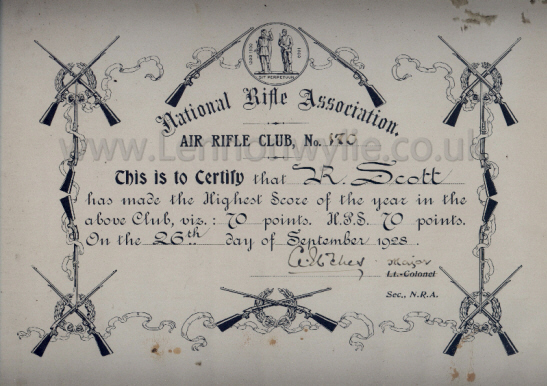 SIT PERPETUUM
National Rifle Association.
AIR RIFLE CLUB, No.
www.Lennonwylie.co.uk
This is to Certify that R. Scott
has made the Highest Score of the year in the
above Club, viz.: 70 points. H.P.S. 70 points.
On the 26th day of September 1928.
Major
Lt.-Colonel
Sec., N.R.A.